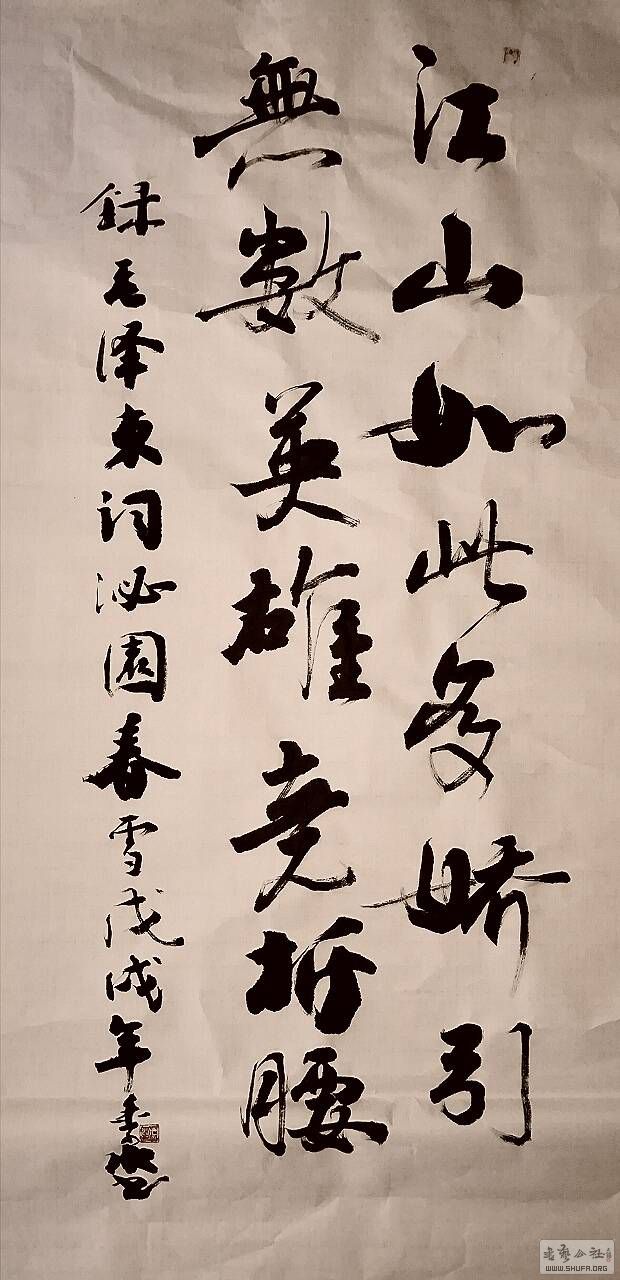 江山如此多娇引
無數英雄竞折腰
録毛泽东词沁園春雪戊戌年
WWW.SHUFA.ORG